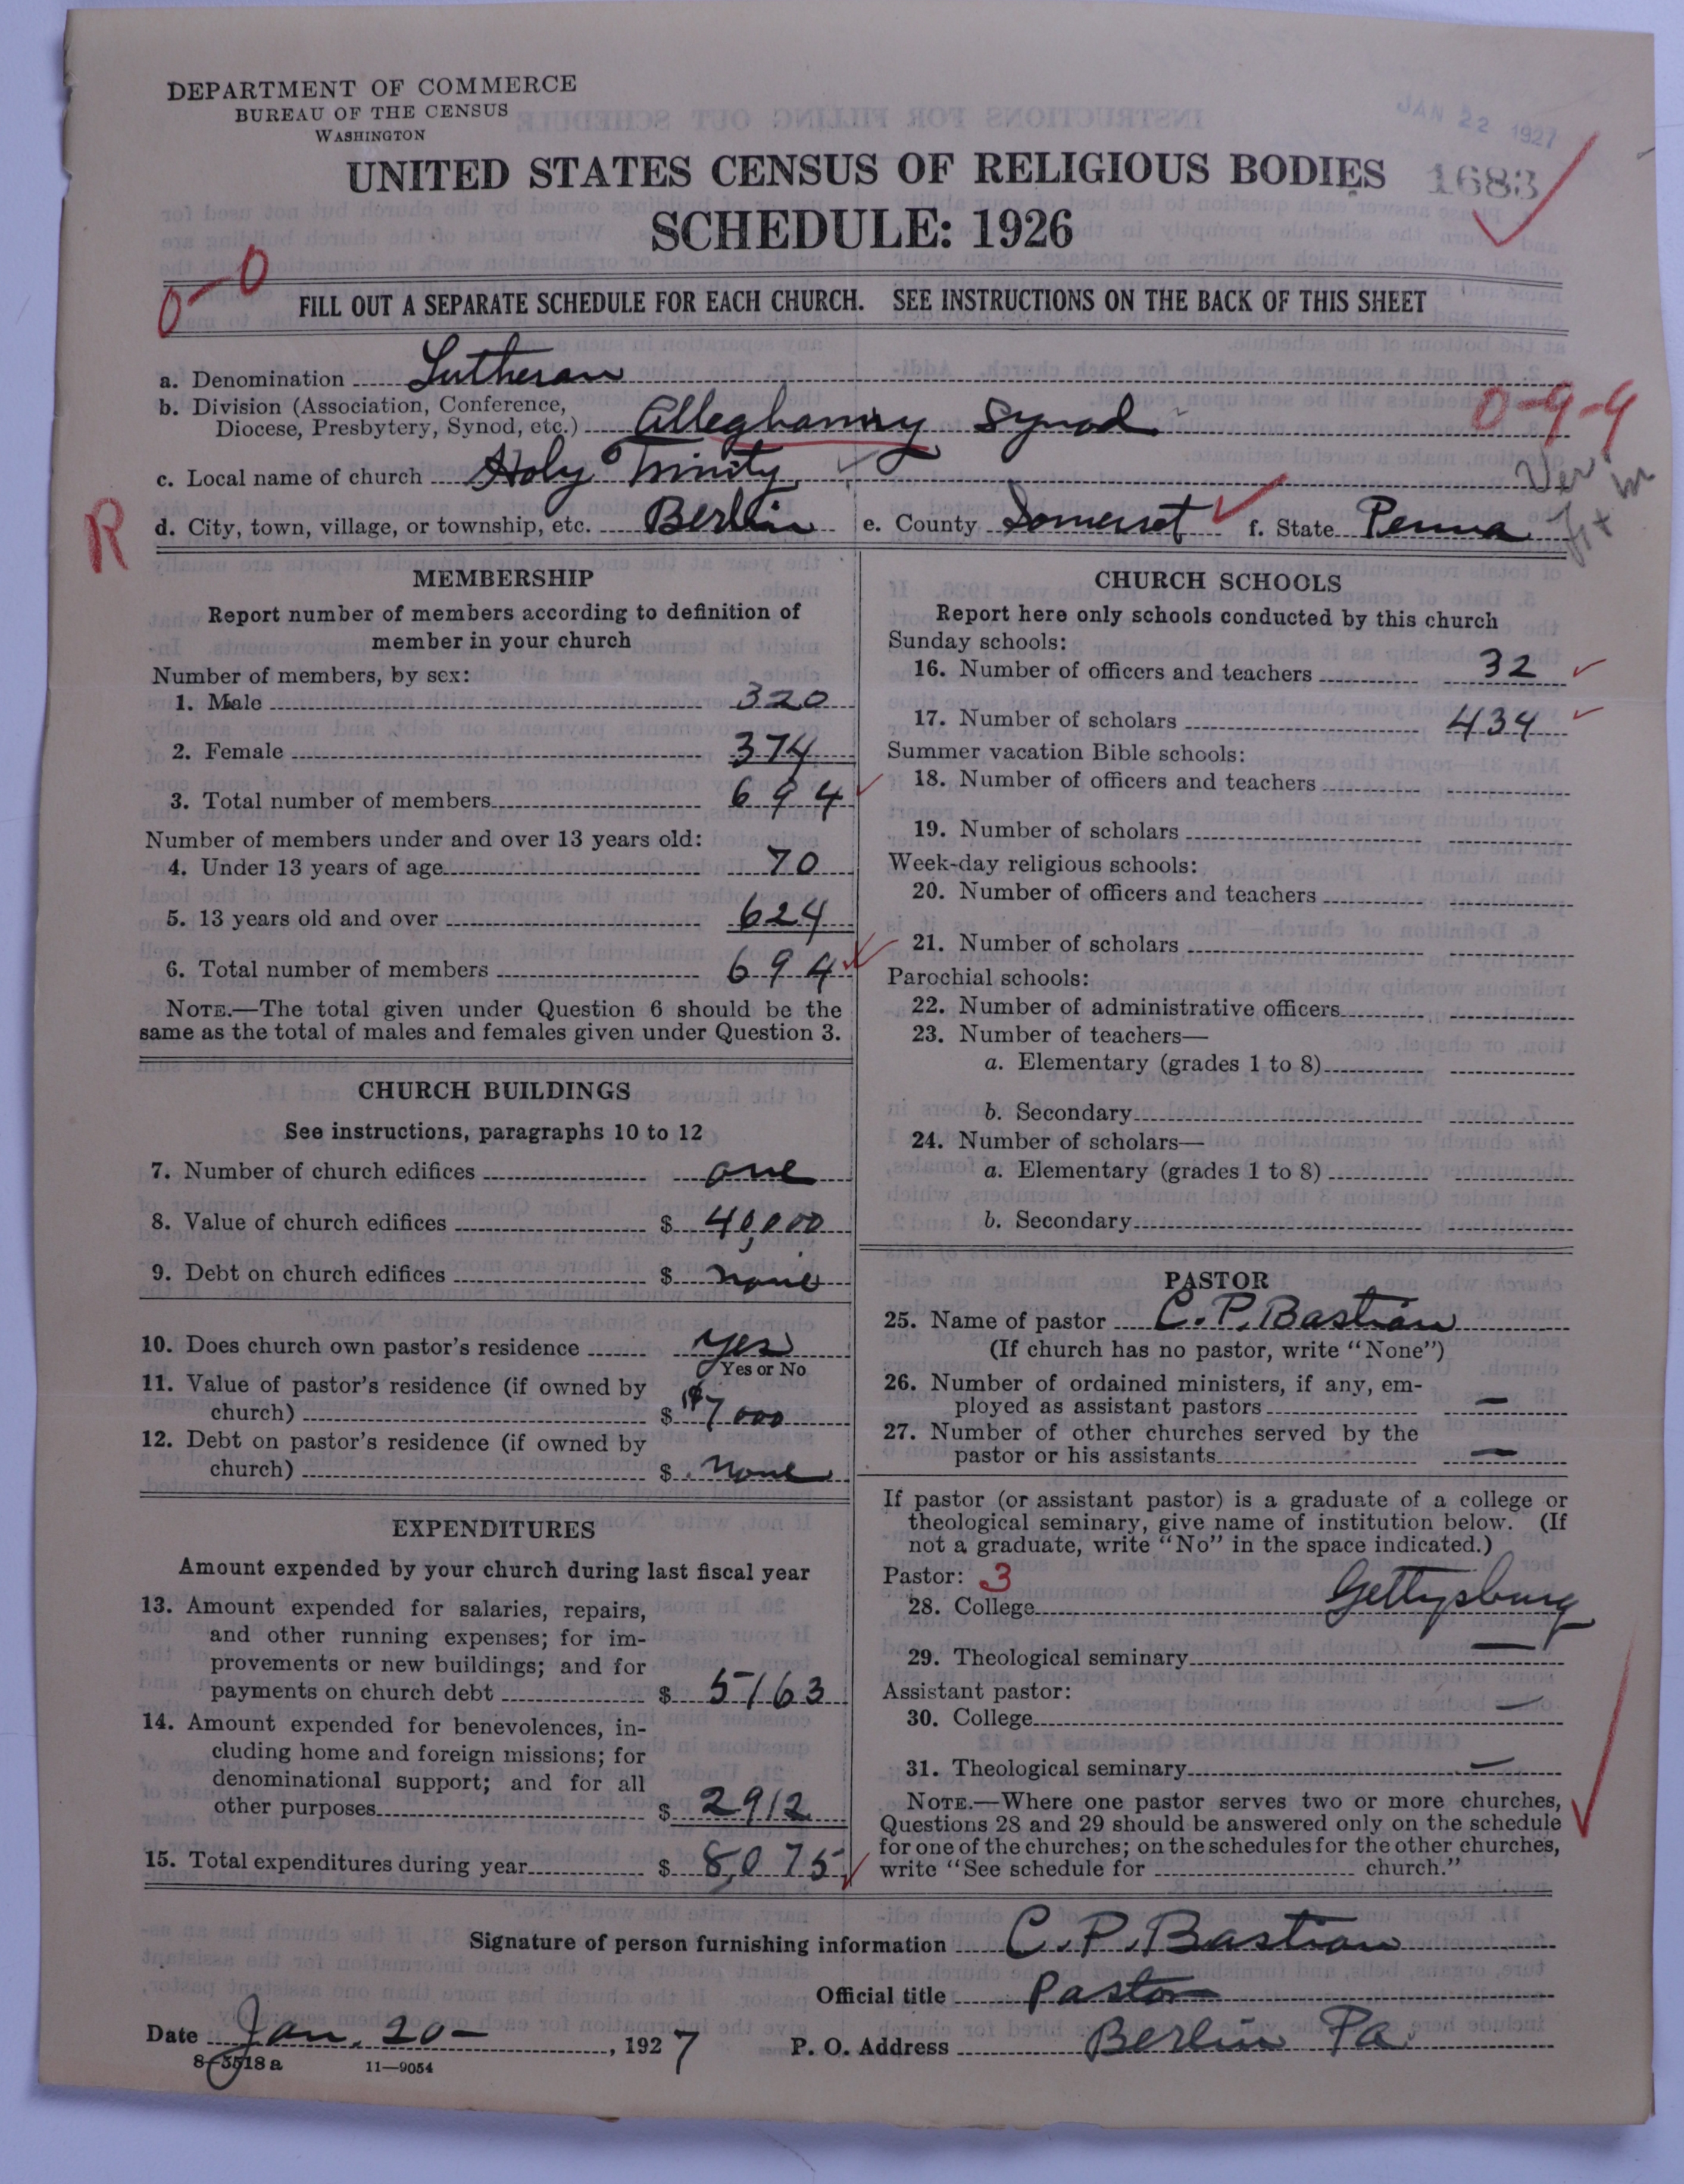 DEPARTMENT OF COMMERCE
BUREAU OF THE CENSUS
WASHINGTON
JAN 22 1927
UNITED STATES CENSUS OF RELIGIOUS BODIES
1683
SCHEDULE: 1926
0-0
FILL OUT A SEPARATE SCHEDULE FOR EACH CHURCH. SEE INSTRUCTIONS ON THE BACK OF THIS SHEET
a. Denomination Lutheran
b. Division (Association, Conference,
Diocese, Presbytery, Synod, etc.) Alleghanny Synod
0-9-9
c. Local name of church Holy Trinity
R
d. City, town, village, or township, etc. Berlin e. County Somerset f. State Penna
MEMBERSHIP
Report number of members according to definition of
member in your church
Number of members, by sex:
1. Male 320
2. Female 374
3. Total number of members 694
Number of members under and over 13 years old:
4. Under 13 years of age 70
5. 13 years old and over 624
6. Total number of members 694
NOTE.—The total given under Question 6 should be the
same as the total of males and females given under Question 3.
CHURCH BUILDINGS
See instructions, paragraphs 10 to 12
7. Number of church edifices one
8. Value of church edifices $ 40,000
9. Debt on church edifices $ none
10. Does church own pastor's residence yes
Yes or No
11. Value of pastor's residence (if owned by
church) $ $7000
12. Debt on pastor's residence (if owned by
church) $ none
EXPENDITURES
Amount expended by your church during last fiscal year
13. Amount expended for salaries, repairs,
and other running expenses; for im-
provements or new buildings; and for
payments on church debt $ 5163
14. Amount expended for benevolences, in-
cluding home and foreign missions; for
denominational support; and for all
other purposes $ 2912
15. Total expenditures during year $ 8,075
CHURCH SCHOOLS
Report here only schools conducted by this church
Sunday schools:
16. Number of officers and teachers 32
17. Number of scholars 434
Summer vacation Bible schools:
18. Number of officers and teachers
19. Number of scholars
Week-day religious schools:
20. Number of officers and teachers
21. Number of scholars
Parochial schools:
22. Number of administrative officers
23. Number of teachers—
a. Elementary (grades 1 to 8)
b. Secondary
24. Number of scholars—
a. Elementary (grades 1 to 8)
b. Secondary
PASTOR
25. Name of pastor C. P. Bastian
(If church has no pastor, write "None")
26. Number of ordained ministers, if any, em-
ployed as assistant pastors —
27. Number of other churches served by the
pastor or his assistants —
If pastor (or assistant pastor) is a graduate of a college or
theological seminary, give name of institution below. (If
not a graduate, write "No" in the space indicated.)
Pastor: 3
28. College Gettysburg
29. Theological seminary —
Assistant pastor:
30. College —
31. Theological seminary —
NOTE.—Where one pastor serves two or more churches,
Questions 28 and 29 should be answered only on the schedule
for one of the churches; on the schedules for the other churches,
write "See schedule for church."
Signature of person furnishing information C. P. Bastian
Official title Pastor
Date Jan. 20 —, 1927 P. O. Address Berlin Pa.
8-5518 a 11—9054